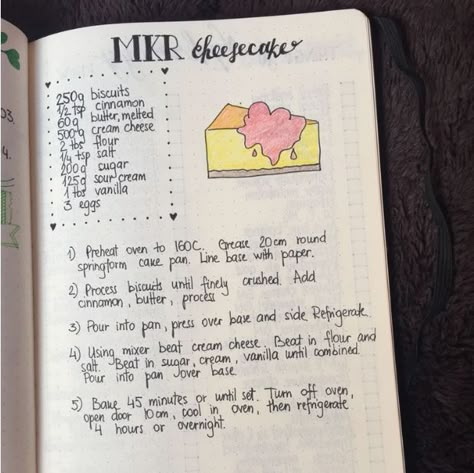 MKR cheesecake
250g biscuits
1/2 tsp cinnamon
60g butter, melted
500g cream cheese
2 tbs flour
1/4 tsp salt
200g sugar
125g sour cream
1 tbs vanilla
3 eggs
1) Preheat oven to 160C. Grease 20cm round
springform cake pan. Line base with paper.
2) Process biscuits until finely crushed. Add
cinnamon, butter, process
3) Pour into pan, press over base and side. Refrigerate.
4) Using mixer beat cream cheese. Beat in flour and
salt. Beat in sugar, cream, vanilla until combined.
Pour into pan over base.
5) Bake 45 minutes or until set. Turn off oven,
open door 10cm, cool in oven, then refrigerate
4 hours or overnight.